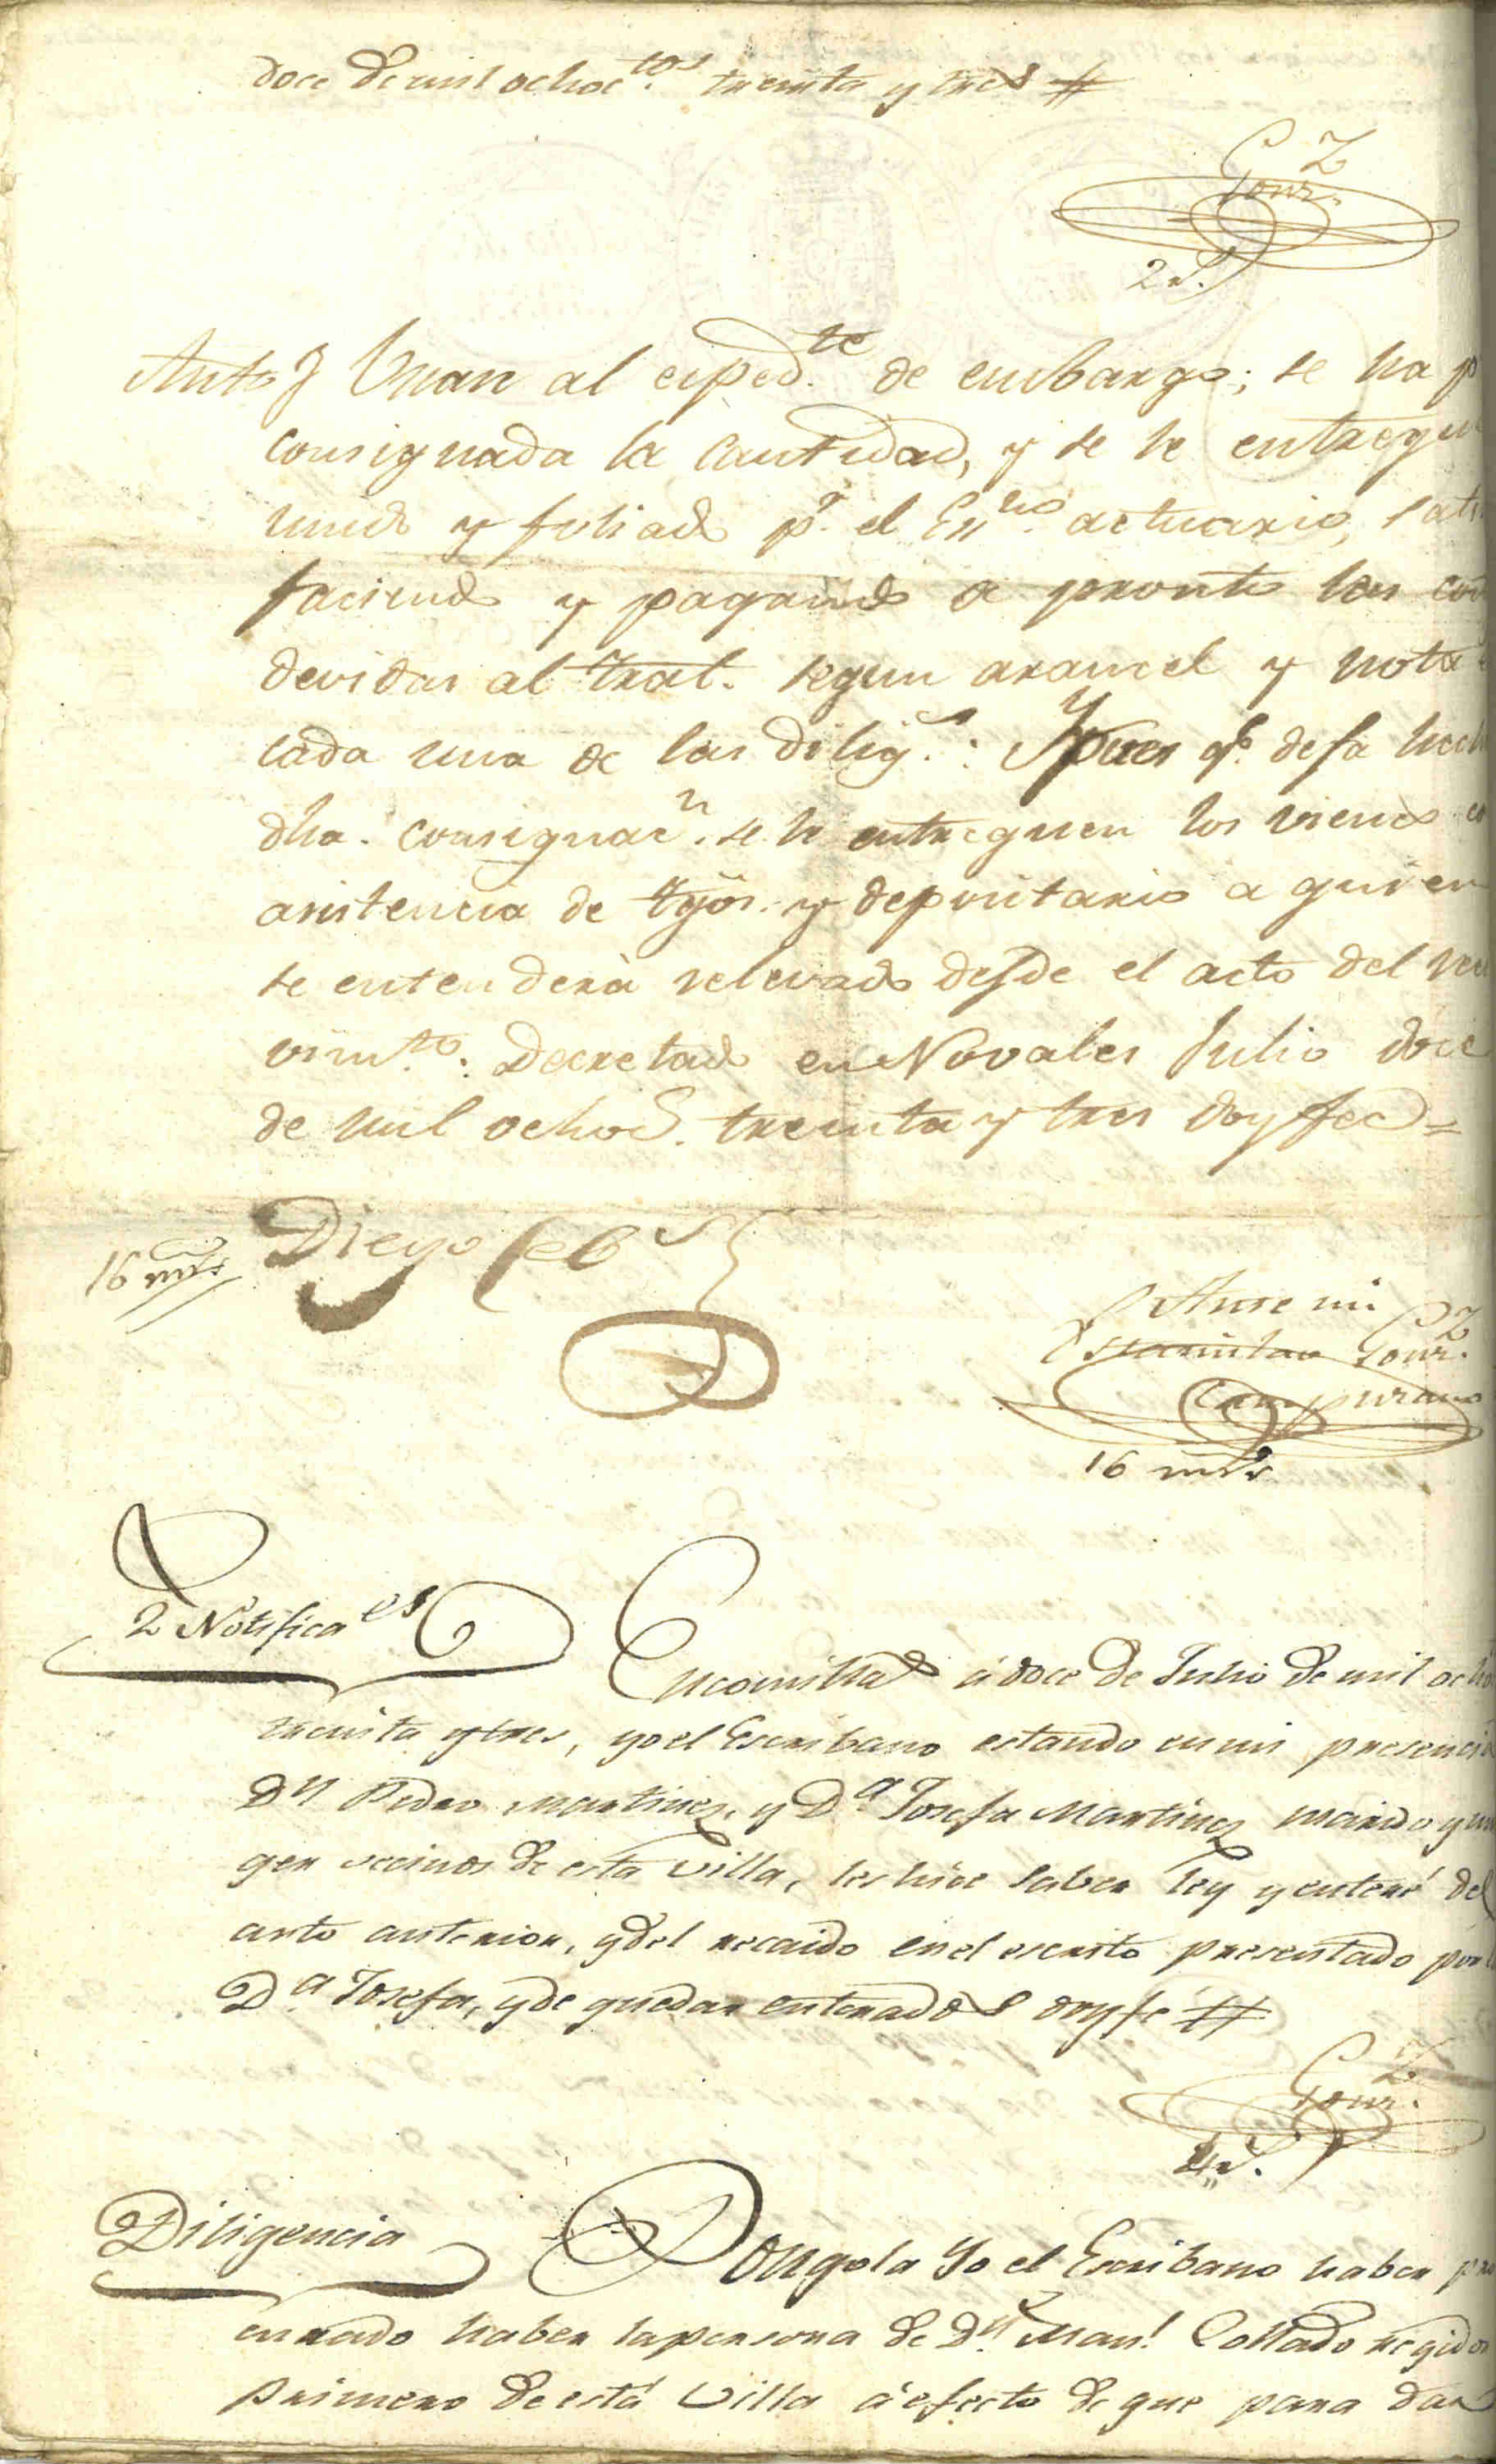 doce de mil ochoc.tos treinta y tres #
Gonz.
2 r.s
Auto } Unan al exped.te de embargo; se ha p
consignada la cantidad, y se le entregu
unido y foliado p.r el Ess.no actuario, satis
faciendo y pagando de pronto las cos
devidas al tral. segun arancel y nota
cada una de las dilig.s: Y pues q.e deja hech
dha. consignac.n se le entreguen los vienes
asistencia de tgos. y depositario a quien
se entenderà relevado desde el acto del reci
vim.to: Decretado en Novales Julio doce
de mil ochoc. treinta y tres doy fee =
16 mrs Diego
Ante mi
Estanislao Gonz.z
Campuzano
16 mrs
2 Notifica.es
En comillas à doce de Julio de mil ocho
treinta y tres, yo el Escribano estando en mi presencia
D.n Pedro Martinez, y D.a Josefa Martinez marido y mu
ger vecinos de esta Villa, les hice saber ley y enteré del
auto anterior, y del recaido en el escrito presentado por
D.a Josefa, y de quedar enterados doy fe #
Gonz.
4 r.s
Diligencia
Pongola Yo el Escribano haber pro
curado haber la persona de D.n Man.l Collado regidor
primero de està Villa à efecto de que para dar